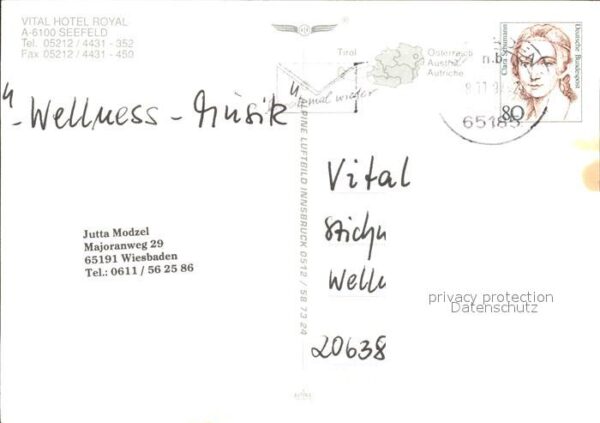 VITAL HOTEL ROYAL
A-6100 SEEFELD
Tel. 05212 / 4431 - 352
Fax 05212 / 4431 - 450
"-Wellness-Musik"
Jutta Modzel
Majoranweg 29
65191 Wiesbaden
Tel.: 0611 / 56 25 86
ALPINE LUFTBILD INNSBRUCK 0512 / 58 73 24
Tirol
Österreich
Austria
Autriche
mal wieder
n.b.
65185
Clara Schumann
Deutsche Bundespost
80
Vital
Stichw
Well
20638
privacy protection
Datenschutz